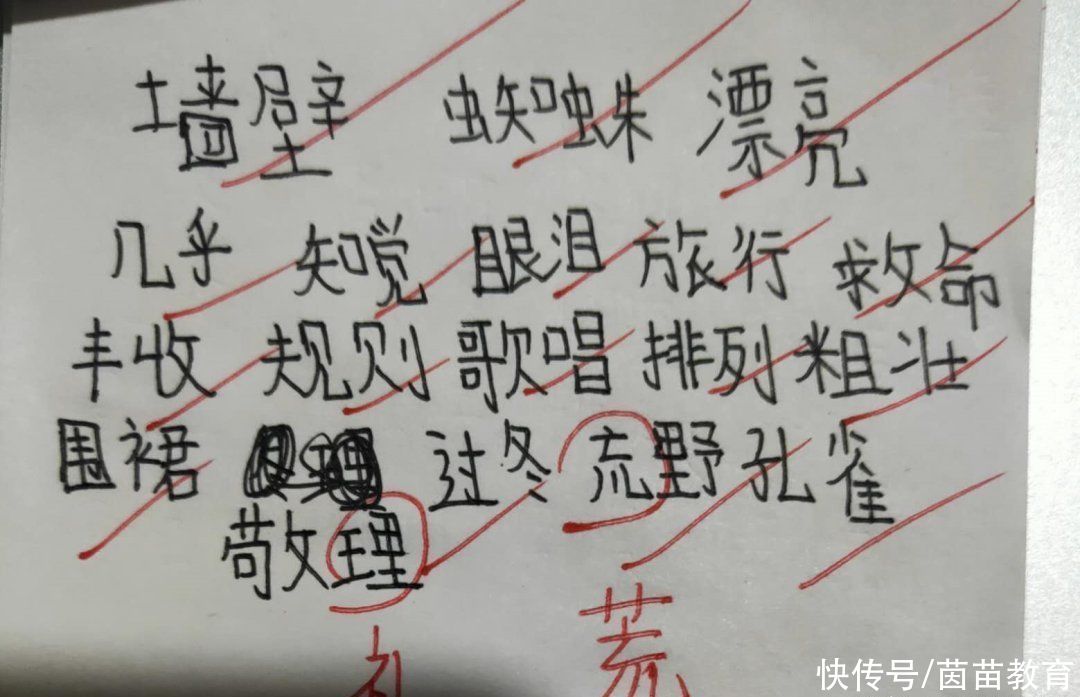 墙壁 蜘蛛 漂亮
几乎 知觉 眼泪 旅行 救命
丰收 规则 歌唱 排列 粗壮
围裙 过冬 㐬野 孔雀
敬理
礼 荒
快传号/茵苗教育